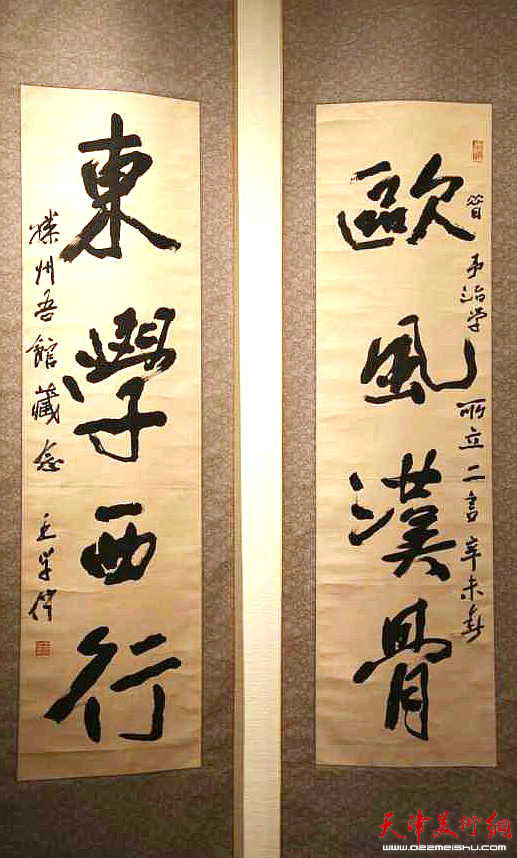 歐風漢骨
予治学所立二言辛未春
東學西行
滕州吾館藏念
王学仲
天津美术網
www.022meishu.com